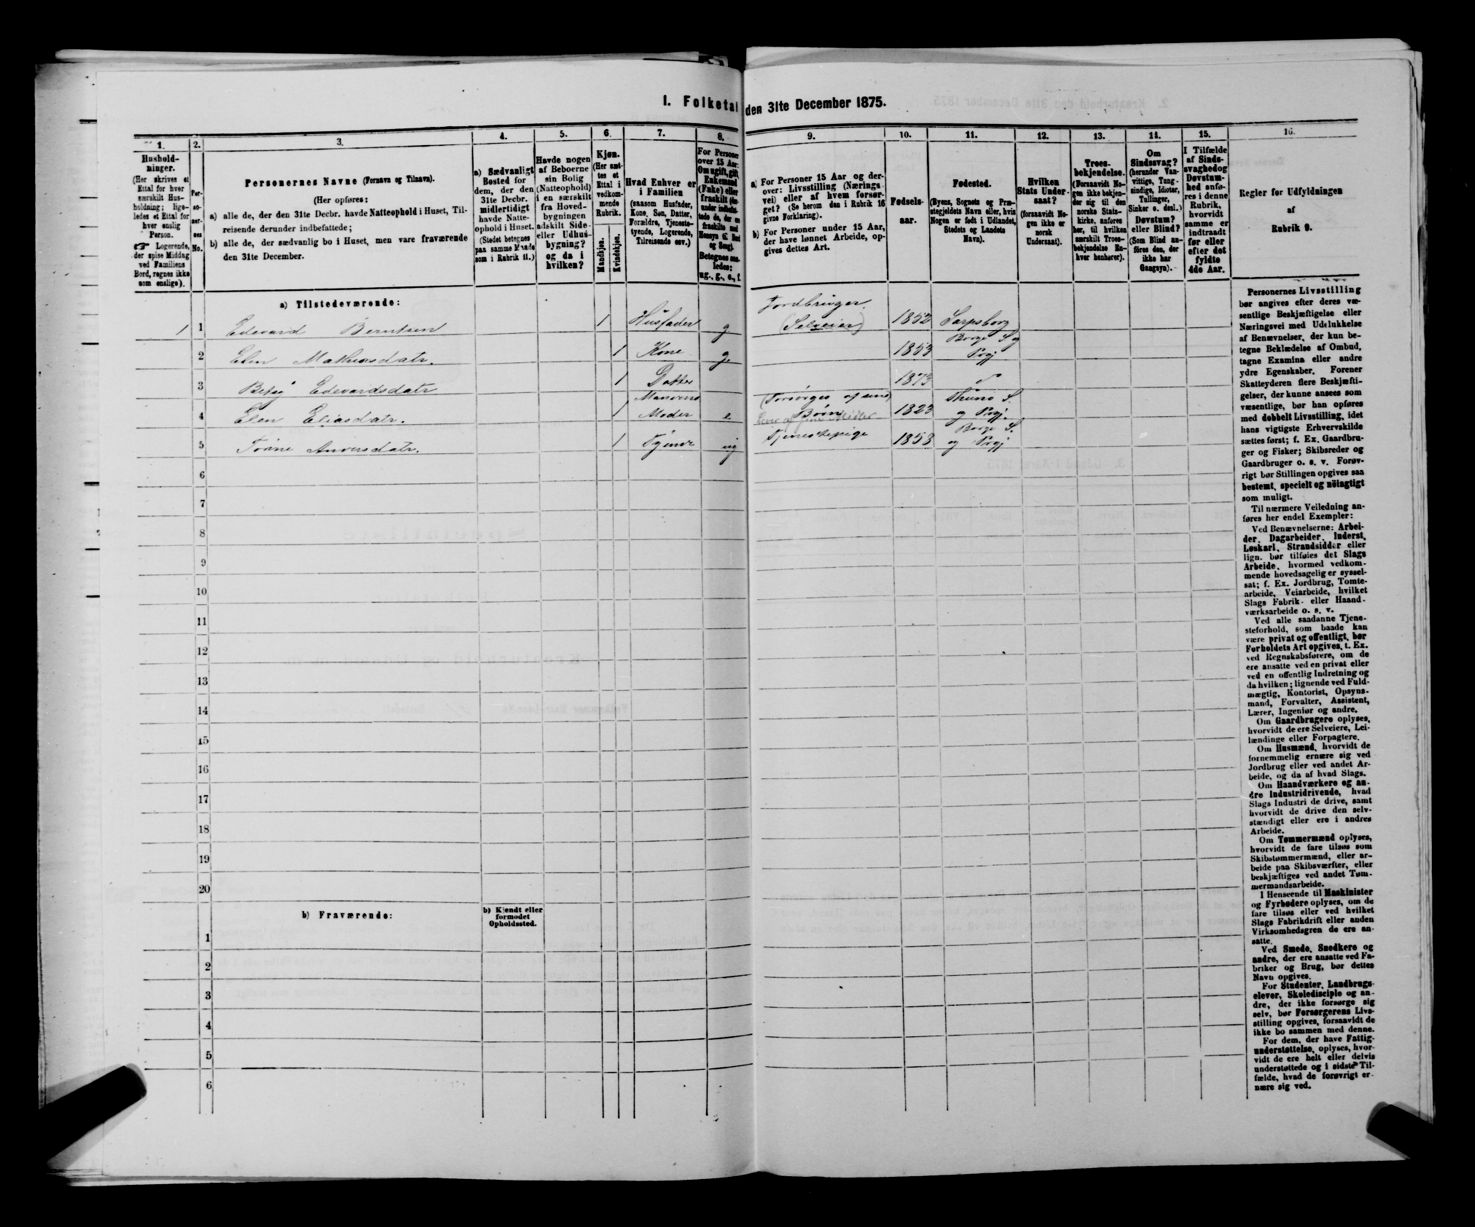 I. Folketal den 31te December 1875.
1. 2. 3. 4. 5. 6. 7. 8. 9. 10. 11. 12. 13. 14. 15. 16.
Husholdninger.
(Her skrives et
Ettal for hver
særskilt Husholdning; ligeledes et Ettal for
hver enslig
Person.
☛ Logerende,
der spise Middag
ved Familiens
Bord, regnes ikke
som enslige).
Personernes No.
Personernes Navne (Fornavn og Tilnavn).
(Her opføres:
a) alle de, der den 31te Decbr. havde Natteophold i Huset, Tilreisende derunder indbefattede;
b) alle de, der sædvanlig bo i Huset, men vare fraværende
den 31te December.
a) Sædvanligt
Bosted for
dem, der den
31te Decbr.
midlertidigt
havde Natteophold i Huset.
(Stedet betegnes
paa samme Maade
som i Rubrik 11.)
Havde nogen
af Beboerne
sin Bolig
(Natteophold)
i en særskilt
fra Hovedbygningen
adskilt Side-
eller Udhusbygning?
og da i
hvilken?
Kjøn.
(Her sættes et
Ettal i
vedkommende
Rubrik.
Mandkjøn.
Kvindekjøn.
Hvad Enhver er
i Familien
(saasom Husfader,
Kone, Søn, Datter,
Forældre, Tjenestetyende, Logerende,
Tilreisende osv.)
For Personer
over 15 Aar:
Om ugift, gift
Enkemand
(Enke) eller
fraskilt
Betegnes saaledes:
ug., g., e., f.
a) For Personer 15 Aar og derover: Livsstilling (Næringsvei) eller af hvem forsørget? (Se herom den i Rubrik 16
givne Forklaring).
b) For Personer under 15 Aar,
der have lønnet Arbeide, opgives dettes Art.
Fødselsaar.
Fødested.
(Byens, Sognets og Præstegjeldets Navn eller, hvis
Nogen er født i Udlandet,
Stedets og Landets
Navn).
Hvilken
Stats Undersaat?
(forsaavidt Nogen ikke er
norsk
Undersaat).
Troesbekjendelse.
(Forsaavidt Nogen ikke bekjender sig til den
norske Statskirke, anføres
her, til hvilken
særskilt Troesbekjendelse Enhver henhører).
Om
Sindssvag?
(herunder Vanvittige, Tungsindige, Idioter,
Tullinger,
Sinker o. desl.)
Døvstum?
eller Blind?
(Som Blind anføres den, der
ikke har
Gangsyn).
I Tilfælde
af Sindssvaghed og
Døvstumhed anføres i denne
Rubrik,
hvorvidt
samme er
indtraadt
før eller
efter det
fyldte
4de Aar.
Regler for Udfyldningen
af
Rubrik 9.
a) Tilstedeværende:
1 1 Edevard Berntsen 1 Husfader g Jordbruger (Selveier) 1852 Sarpsborg
2 Elen Mathiasdatr. 1 Kone g 1853 Borge S. og Prgj
3 Edevardsdatr 1 Datter 1873 "
4 Elen Eliasdatr. 1 Moder e Børn 1823 S. og Prgj.
5 Andersdatr. 1 Tyende ug Tjenestepige 1853 Borge S. og Prgj
6
7
8
9
10
11
12
13
14
15
16
17
18
19
20
b) Fraværende:
b) Kjendt eller
formodet
Opholdssted.
1
2
3
4
5
6
Personernes Livsstilling
bør angives efter deres væsentlige Beskjæftigelse eller
Næringsvei med Udelukkelse
af Benævnelser, der kun betegne Beklædelse af Ombud,
tagne Examina eller andre
ydre Egenskaber. Forener
Skatteyderen flere Beskjæftigelser, der kunne ansees som
væsentlige, bør han opføres
med dobbelt Livsstilling, idet
hans vigtigste Erhvervskilde
sættes først; f. Ex. Gaardbruger og Fisker; Skibsreder og
Gaardbruger o. s. v. Forøvrigt bør Stillingen opgives saa
bestemt, specielt og nöiagtigt
som muligt.
Til nærmere Veiledning anføres her endel Exempler:
Ved Benævnelserne: Arbeider, Dagarbeider, Inderst,
Løskarl, Strandsidder eller
lign. bør tilføies det Slags
Arbeide, hvormed vedkommende hovedsagelig er sysselsat; f. Ex. Jordbrug, Tomtearbeide, Veiarbeide, hvilket
Slags Fabrik- eller Haandværksarbeide o. s. v.
Ved alle saadanne Tjenesteforhold, som baade kan
være privat og offentligt, bør
Forholdets Art opgives, t. Ex.
ved Regnskabsførere, om de
ere ansatte ved en privat eller
ved en offentlig Indretning og
da hvilken; lignende ved Fuldmægtig, Kontorist, Opsynsmand, Forvalter, Assistent,
Lærer, Ingeniør og andre.
Om Gaardbrugere oplyses,
hvorvidt de ere Selveiere, Leilændinge eller Forpagtere.
Om Husmænd, hvorvidt de
fornemmelig ernære sig ved
Jordbrug eller ved andet Arbeide, og da af hvad Slags.
Om Haandværkere og andre Industridrivende, hvad
Slags Industri de drive, samt
hvorvidt de drive den selvstændigt eller ere i andres
Arbeide.
Om Tømmermænd oplyses,
hvorvidt de fare tilsøs som
Skibstømmermænd, eller arbeide paa Skibsværfter, eller
beskjæftiges ved andet Tømmermandsarbeide.
I Henseende til Maskinister
og Fyrbødere oplyses, om de
fare tilsøs eller ved hvilket
Slags Fabrikdrift eller anden
Virksomhedsgren de ere ansatte.
Ved Smede, Snedkere og
andre, der ere ansatte ved Fabriker og Brug, bør dettes
Navn opgives.
For Studenter, Landbrugselever, Skoledisciple og andre, der ikke forsørge sig
selv, bør Forsørgerens Livsstilling opgives, forsaavidt de
ikke bo sammen med denne.
For dem, der have Fattigunderstøttelse, oplyses, hvorvidt de ere helt eller delvis
understøttede og i sidste Tilfælde, hvad de forøvrigt ernære sig ved.